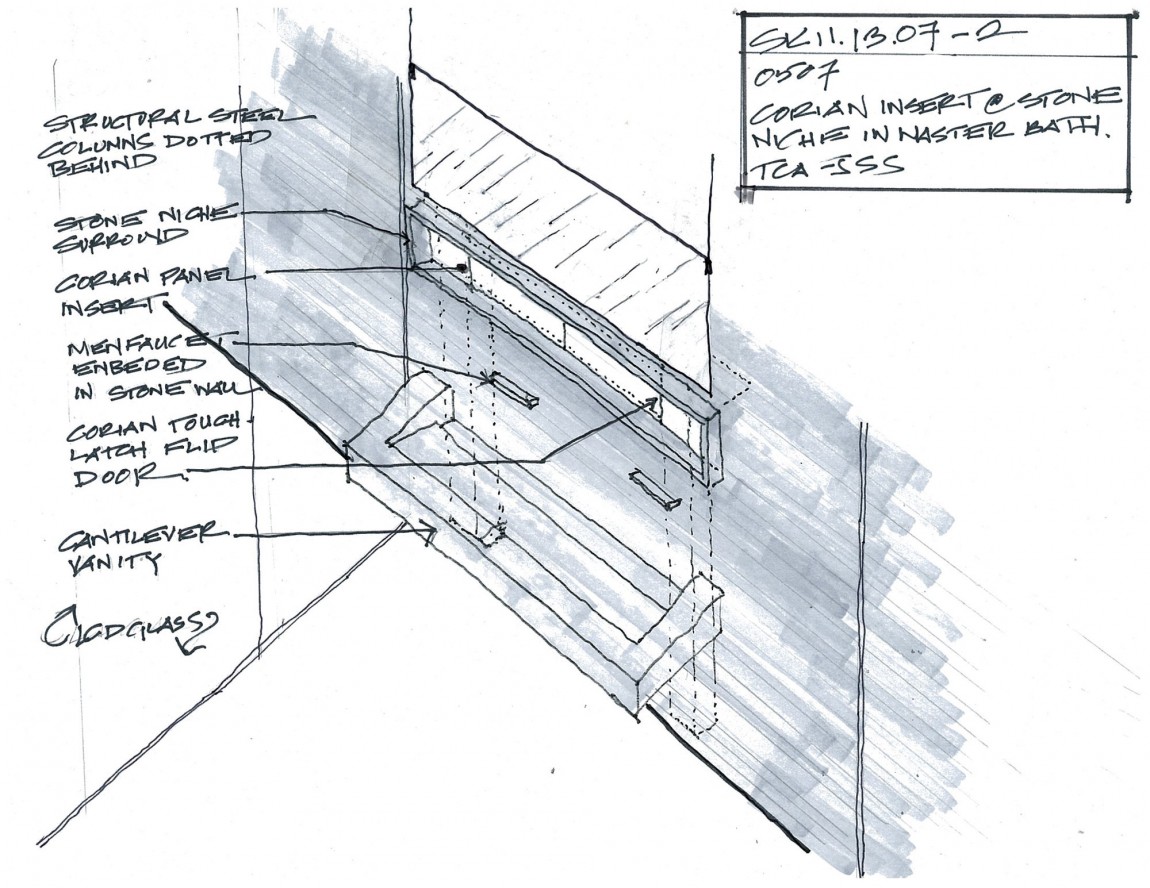 STRUCTURAL STEEL
COLUMNS DOTTED
BEHIND
STONE NICHE
SURROUND
CORIAN PANEL
INSERT
MEN FAUCET
ENBEDED
IN STONE WALL
CORIAN TOUCH
LATCH FLIP
DOOR.
CANTILEVER
VANITY
LCD GLASS?
SK 11.13.07 - 2
0507
CORIAN INSERT @ STONE
NICHE IN MASTER BATH.
TCA - JSS